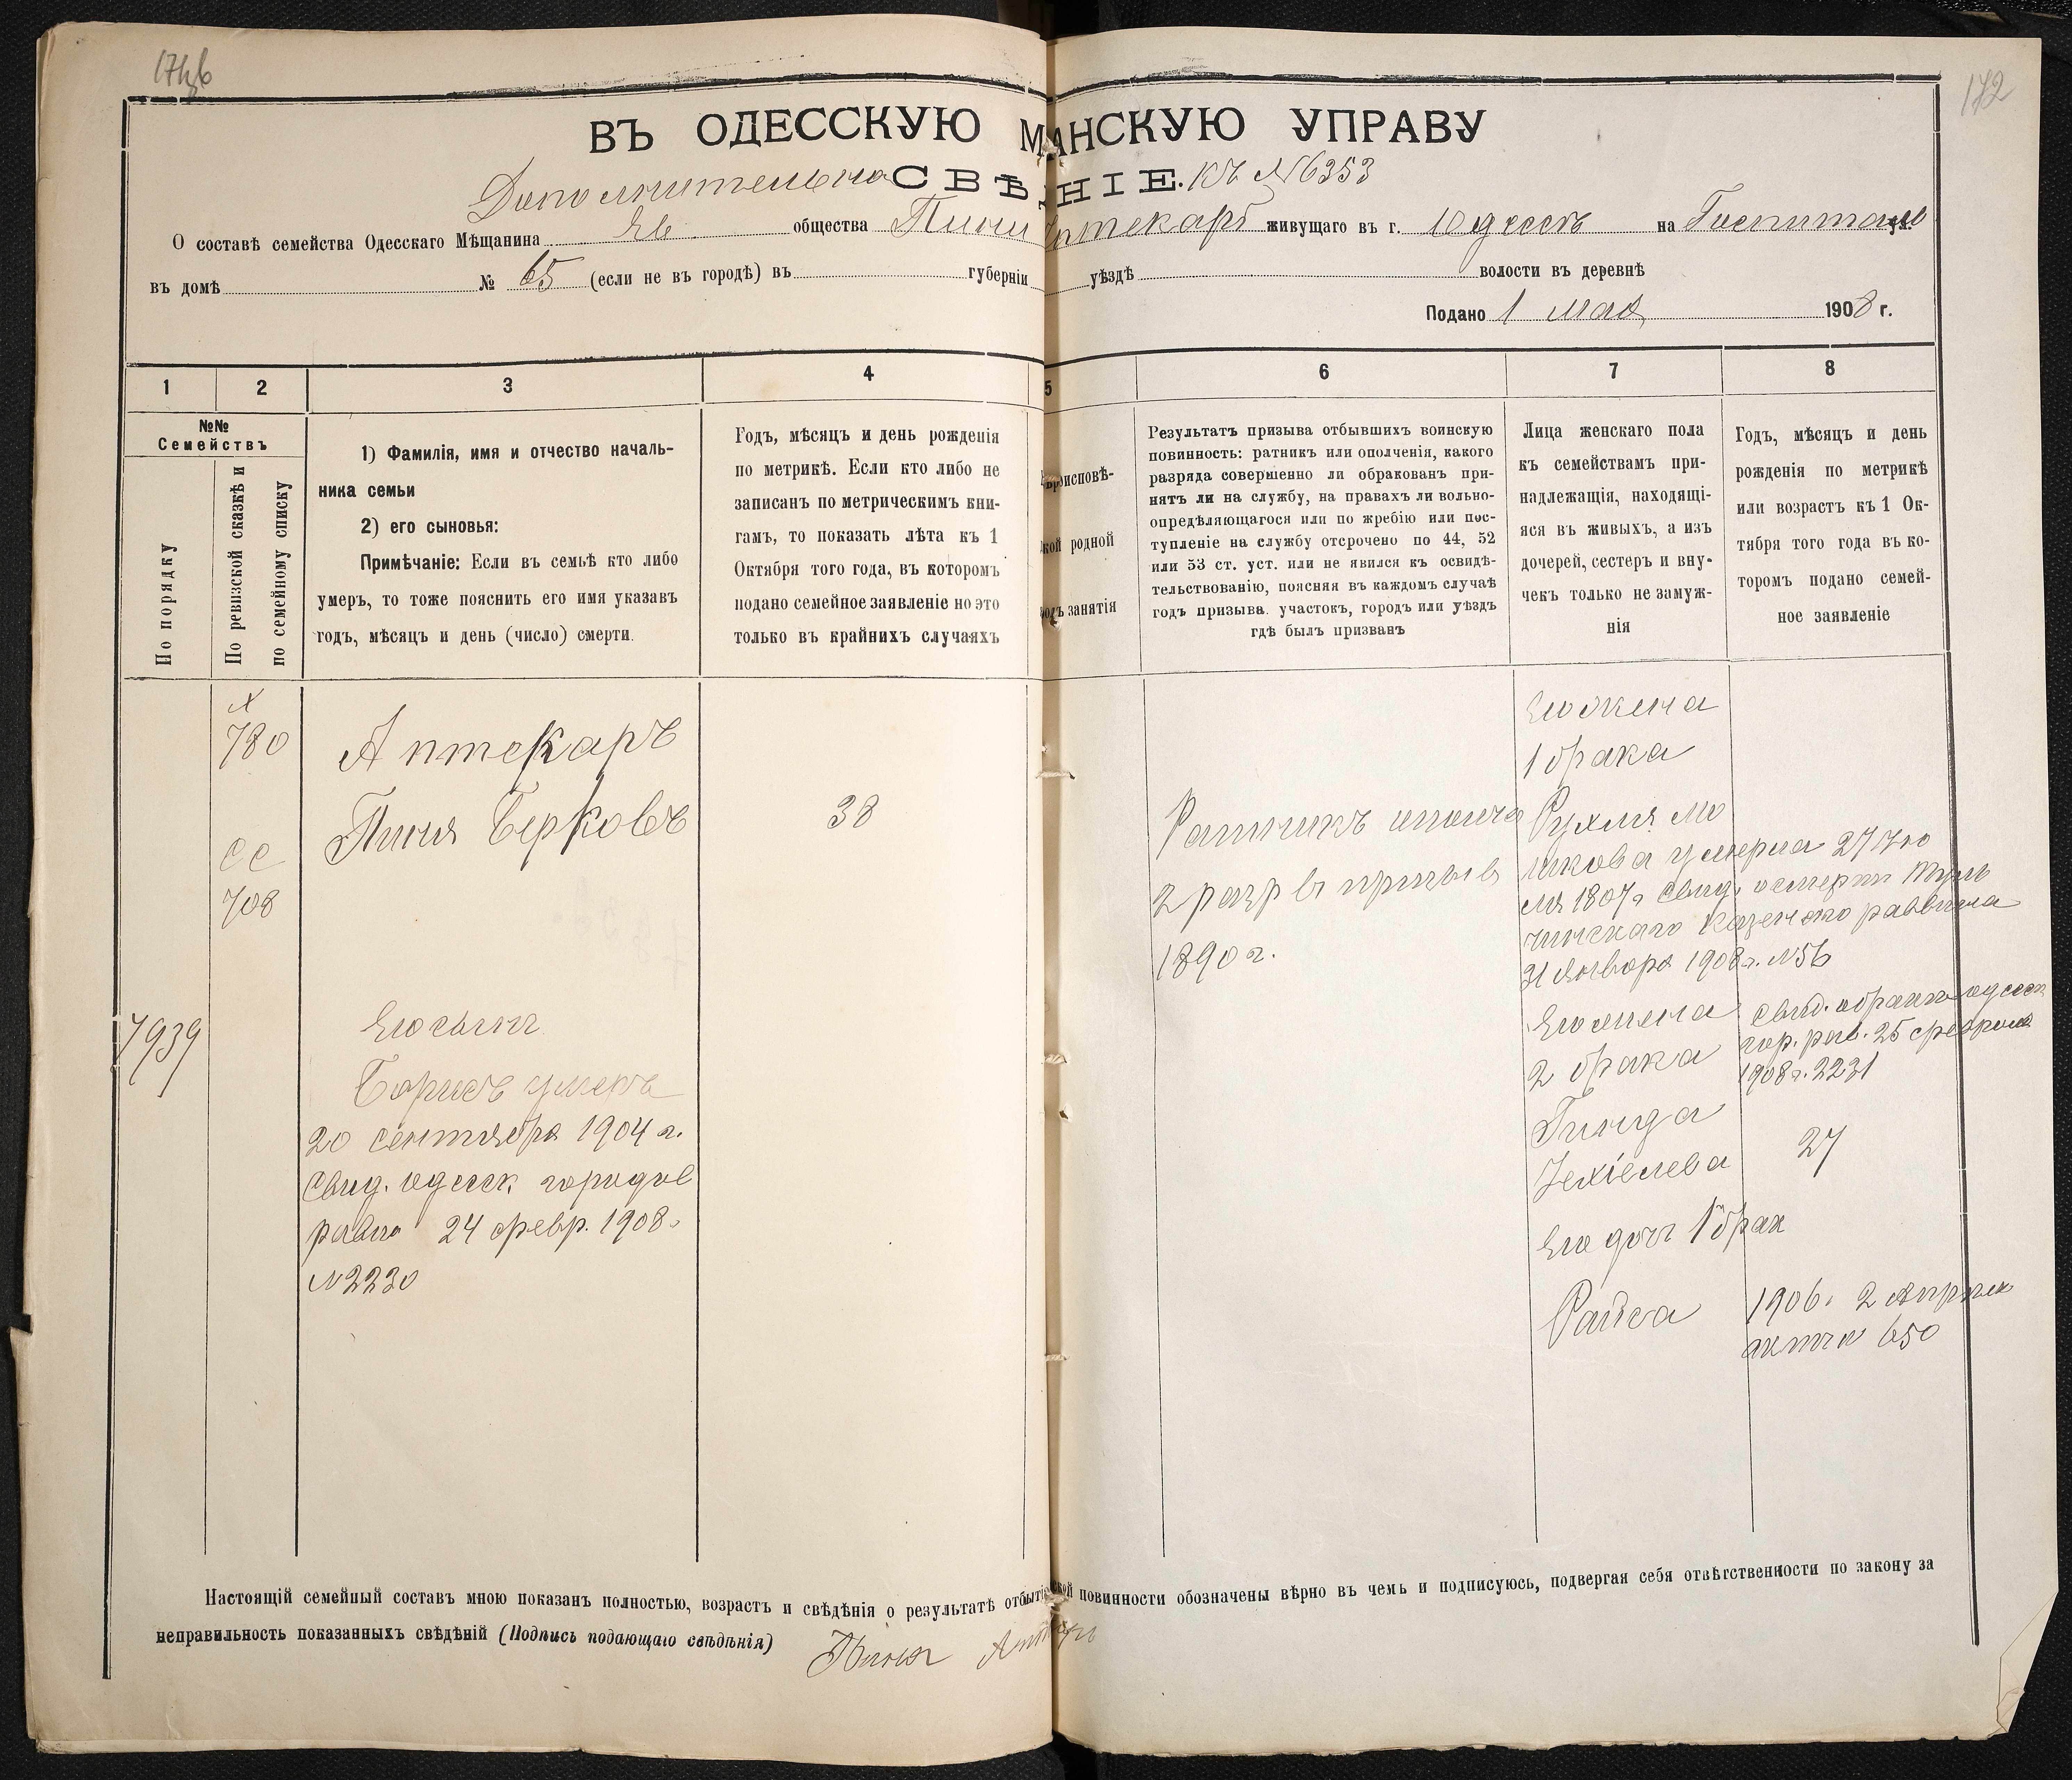 172
ВЪ ОДЕССКУЮ МѢ АНСКУЮ УПРАВУ
Дополнительно СВѢД НІЕ. КЪ №6353
О составѣ семейства Одесскаго Мѣщанина Ев общества Пини Аптекаръ живущаго въ г. Одессѣ на Госпитал ул.
въ домѣ № 65 (если не въ городѣ) въ губерніи уѣздѣ волости въ деревнѣ
Подано 1 мая 1908 г.
1 2 3 4 5 6 7 8
№№
Семействъ
По порядку
По ревизской сказкѣ и
по семейному списку
1) Фамилія, имя и отчество началь-
ника семьи
2) его сыновья:
Примѣчаніе: Если въ семьѣ кто либо
умеръ, то тоже пояснить его имя указавъ
годъ, мѣсяцъ и день (число) смерти.
Годъ, мѣсяцъ и день рожденія
по метрикѣ. Если кто либо не
записанъ по метрическимъ кни-
гамъ, то показать лѣта къ 1
Октября того года, въ которомъ
подано семейное заявленіе но это
только въ крайнихъ случаяхъ
роисповѣ-
кой родной
родъ занятія
Результатъ призыва отбывшихъ воинскую
повинность: ратникъ или ополченія, какого
разряда совершенно ли обракованъ при-
нятъ ли на службу, на правахъ ли вольно-
опредѣляющагося или по жребію или пос-
тупленіе на службу отсрочено по 44, 52
или 53 ст. уст. или не явился къ освидѣ-
тельствованію, поясняя въ каждомъ случаѣ
годъ призыва. участокъ, городъ или уѣздъ
гдѣ былъ призванъ
Лица женскаго пола
къ семействамъ при-
надлежащія, находящі-
яся въ живыхъ, а изъ
дочерей, сестеръ и вну-
чекъ только не замуж-
нія
Годъ, мѣсяцъ и день
рожденія по метрикѣ
или возрастъ къ 1 Ок-
тября того года въ ко-
торомъ подано семей-
ное заявленіе
780
сс
708
7939
Аптекаръ
Пиня Берковъ
Его сынъ
Борисъ умеръ
20 сентября 1904 г.
свид. одесск. городов
равви 24 февр. 1908.
№2230
38
Ратникъ ополче
2 разр въ призывъ
1890 г.
Его жена
1 брака
Рухля Мо
шкова умерла 27 ию
ля 1907 г свид. о смерти Туль
чинскаго казенного раввина
31 января 1908 г. №56
Его жена
2 брака
Гинда
Iехіелева
Его дочь 1 брак
Раиса
свид. о бракѣ одесск
гор. рав. 25 февраля
1908 г. 2231
27
1906. 2 апреля
актъ 650
Настоящій семейный составъ мною показанъ полностью, возрастъ и свѣдѣнія о результатѣ отбыті ской повинности обозначены вѣрно въ чемъ и подписуюсь, подвергая себя отвѣтственности по закону за
неправильность показанныхъ свѣдѣній (Подпись подающаго свѣдѣнія) Пиня Аптекарь